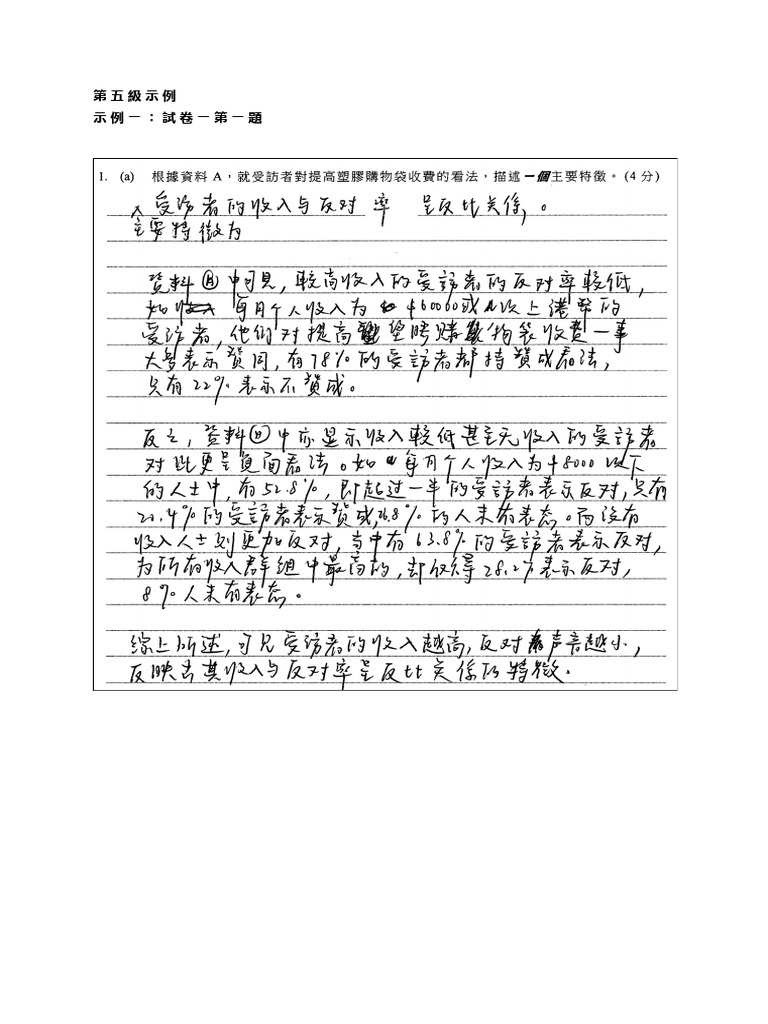 第五級示例
示例一：試卷一第一題
1. (a) 根據資料 A，就受訪者對提高塑膠購物袋收費的看法，描述一個主要特徵。(4 分)
受访者的收入与反对率 呈反比关係。
主要特徵为
資料Ⓐ中可見，較高收入的受訪者的反对率較低，
如 每月个人收入为 $60000或以上港幣的
受訪者，他们对提高 塑膠購物袋收費一事
大多表示贊同，有78%的受訪者都持贊成看法，
只有22%表示不贊成。
反之，資料Ⓐ中亦显示收入較低甚至无收入的受訪者
对此更呈負面看法。如 每月个人收入为$8000以下
的人士中，有52.8%，即超过一半的受訪者表示反对，只有
%的受訪者表示贊成，%的人未有表态。而沒有
收入人士则更加反对，当中有63.8%的受訪者表示反对，
为所有收入群組中最高的，却仅得28.2%表示反对，
8%人未有表态。
綜上所述，可见受訪者的收入越高，反对声音越小，
反映出其收入与反对率呈反比关係的特徵。